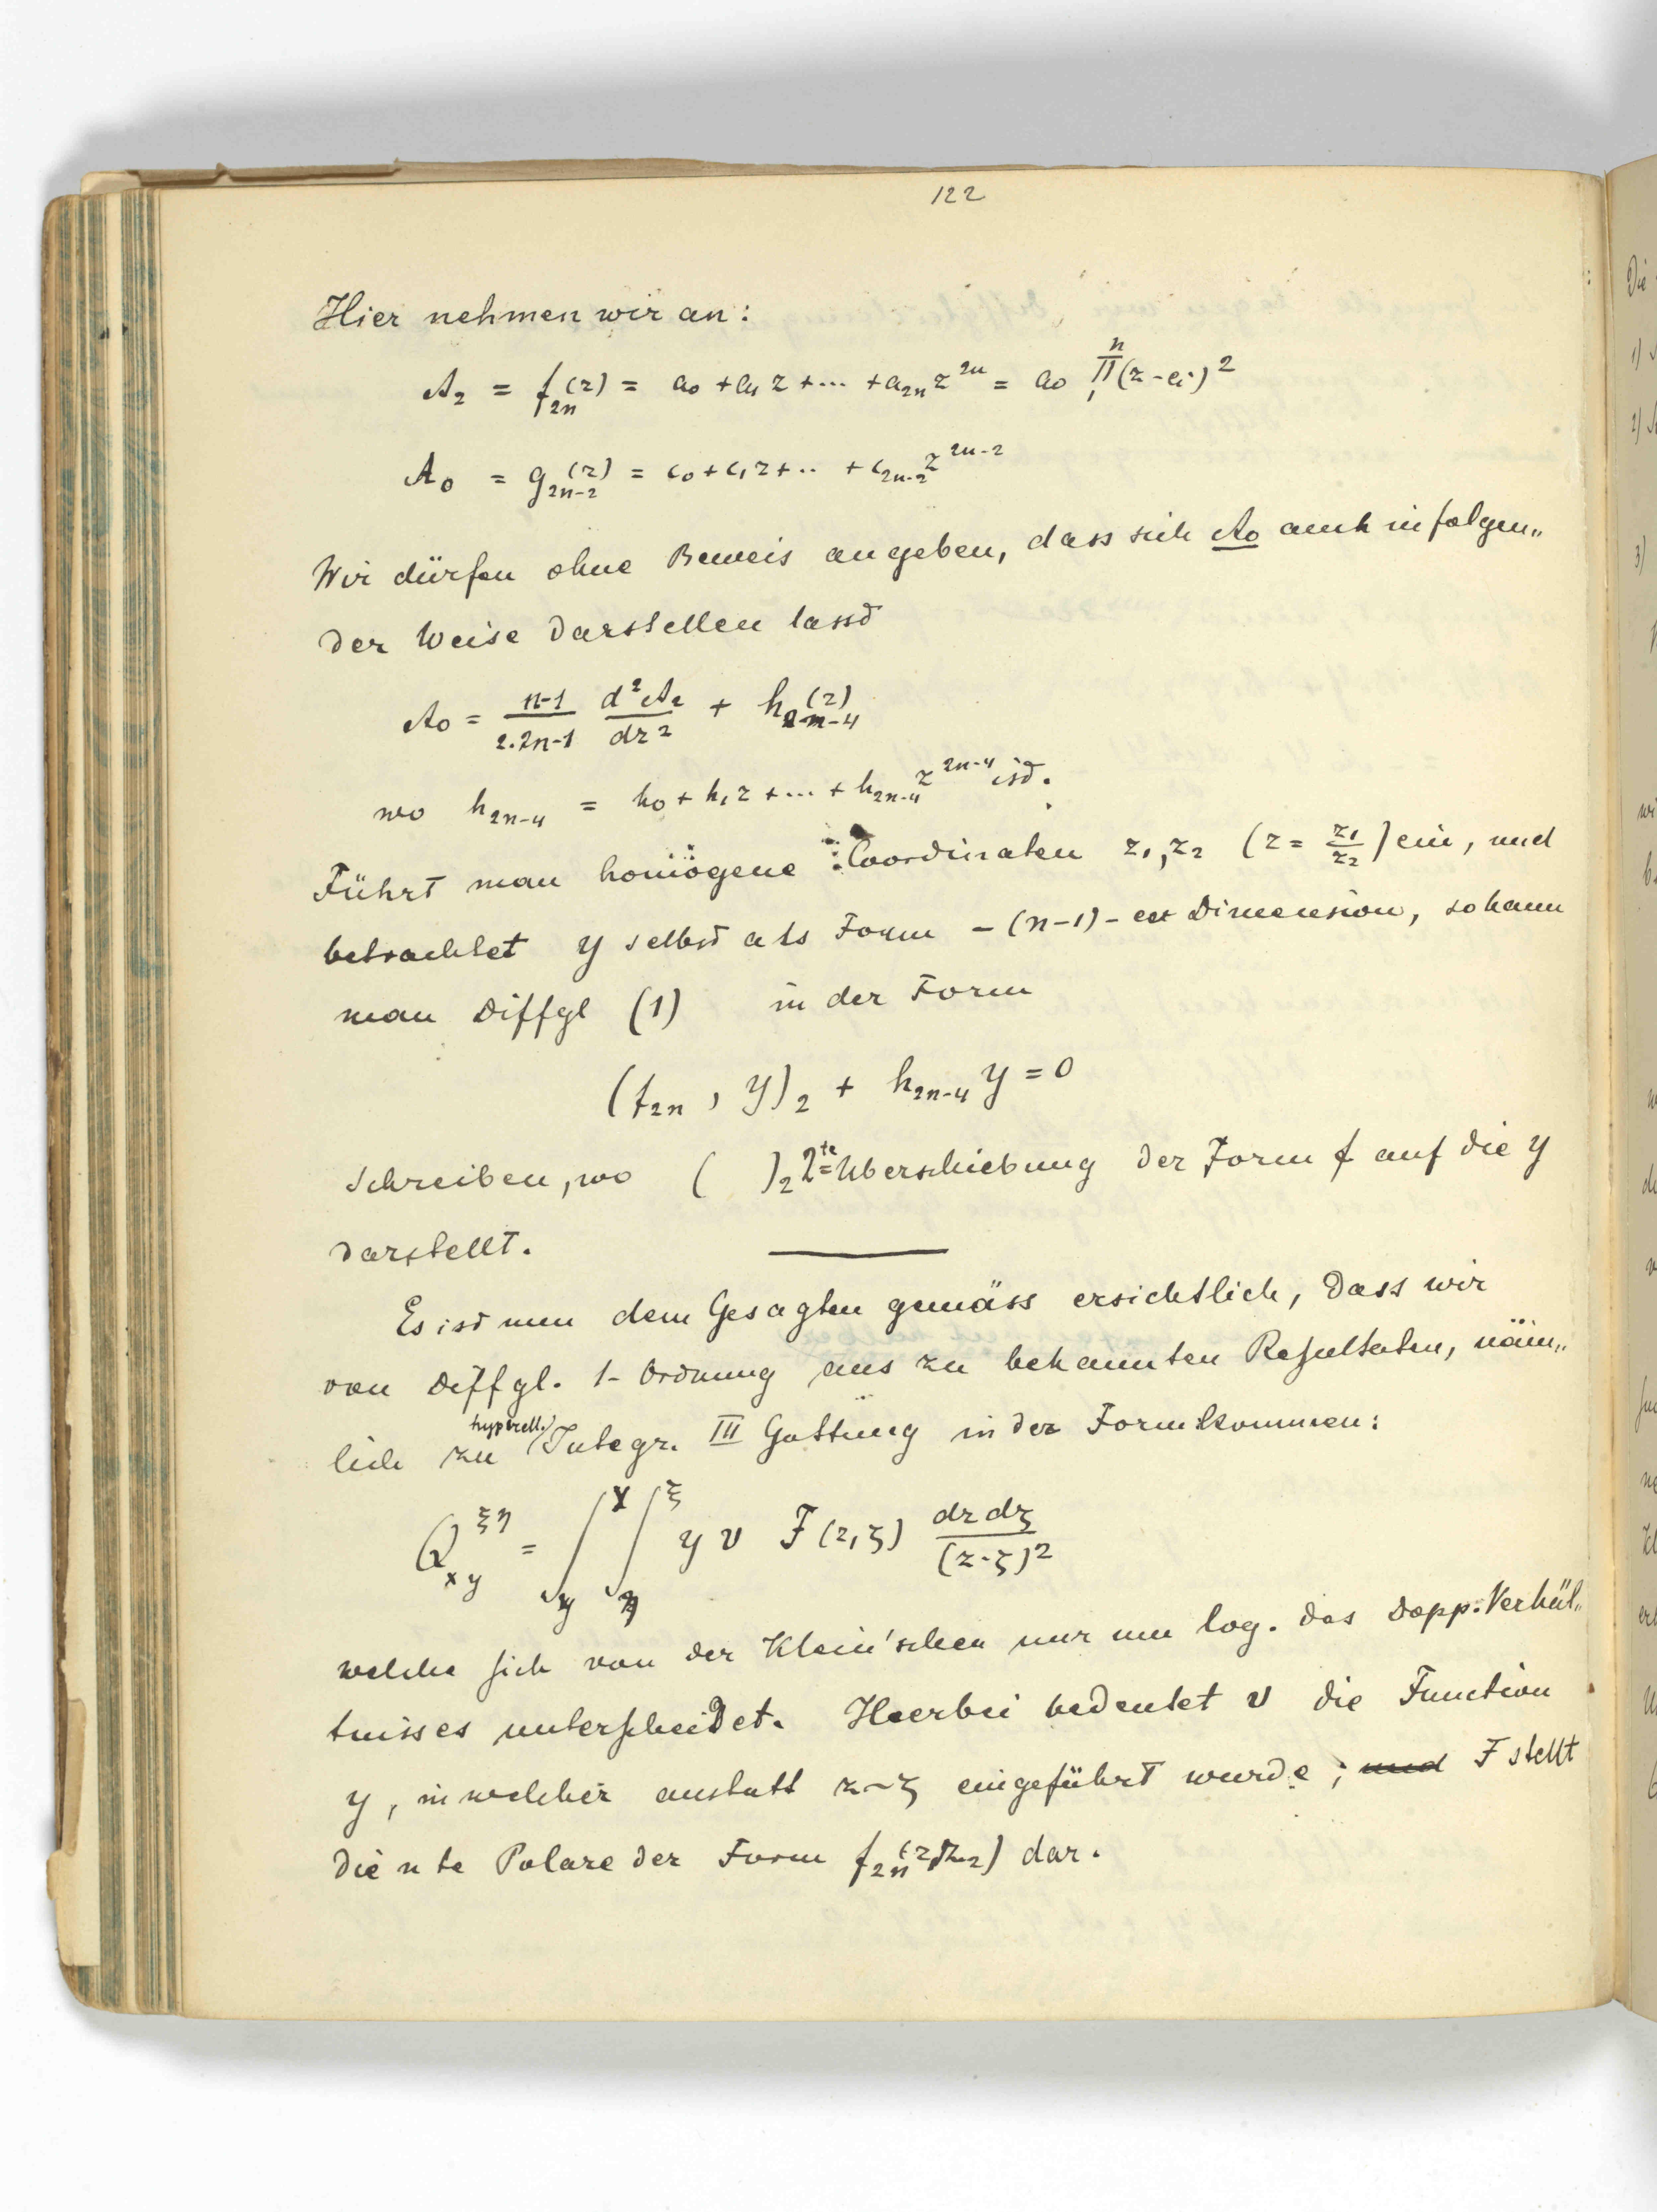 122
Hier nehmen wir an:
A₂ = f₂ₙ(z) = a₀ + a₁ z + ... + a₂ₙ z²ⁿ = a₀ ∏₁ⁿ (z - eᵢ)²
A₀ = g₂ₙ₋₂(z) = c₀ + c₁ z + .. + c₂ₙ₋₂ z²ⁿ⁻²
Wir dürfen ohne Beweis angeben, dass sich A₀ auch in folgen„
der Weise darstellen lasst
A₀ = (n-1)/(2.2n-1) d²A₂/dz² + h₂ₙ₋₄(z)
wo h₂ₙ₋₄ = h₀ + h₁ z + ... + h₂ₙ₋₄ z²ⁿ⁻⁴ ist.
Führt man homogene Coordinaten z₁, z₂ (z = z₁/z₂) ein, und
betrachtet y selbst als Form -(n-1)- Dimension, so kann
man Diffgl (1) in der Form
(f₂ₙ , y)₂ + h₂ₙ₋₄ y = 0
schreiben, wo ( )₂ 2te Überschiebung der Form f auf die y
darstellt.
Es ist nun dem Gesagten gemäss ersichtlich, dass wir
von Diffgl. 1- Ordnung aus zu bekannten Resultaten, näm„
lich zu hyperell. Integr. III Gattung in der Form kommen:
Q_{xy}^{ξη} = ∫_y^x ∫_η^ξ y v F(z,ζ) dz dζ/(z-ζ)²
welche sich von der Klein'schen nur um log. das Dopp. Verhäl„
tnisses unterscheidet. Hierbei bedeutet v die Function
y, in welcher anstatt z ~ ζ eingeführt wurde; und F stellt
die n te Polare der Form f₂ₙ(z₁z₂) dar.